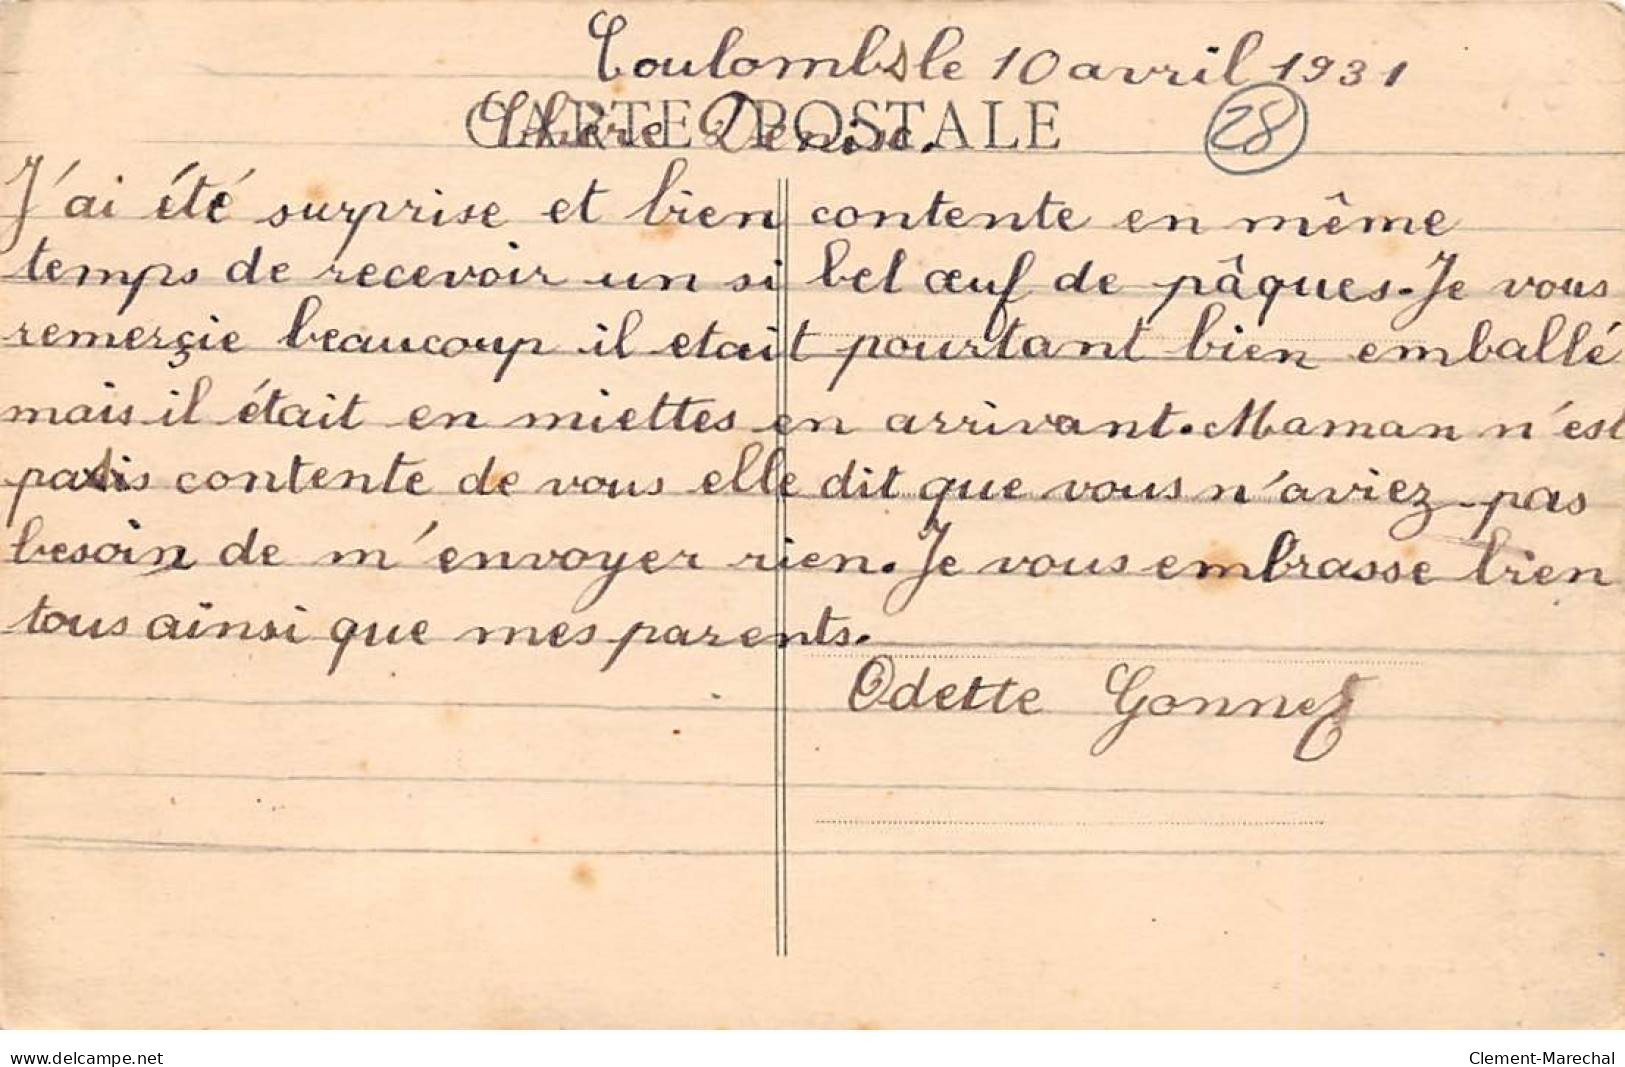 Coulombs le 10 avril 1931
CARTE POSTALE
28
Chère Denise.
J'ai été surprise et bien contente en même
temps de recevoir un si bel œuf de pâques. Je vous
remerçie beaucoup il etait pourtant bien emballé
mais il était en miettes en arrivant. Maman n'est
pas contente de vous elle dit que vous n'aviez pas
besoin de m'envoyer rien. Je vous embrasse bien
tous ainsi que mes parents.
Odette Gonnet
www.delcampe.net
Clement-Marechal